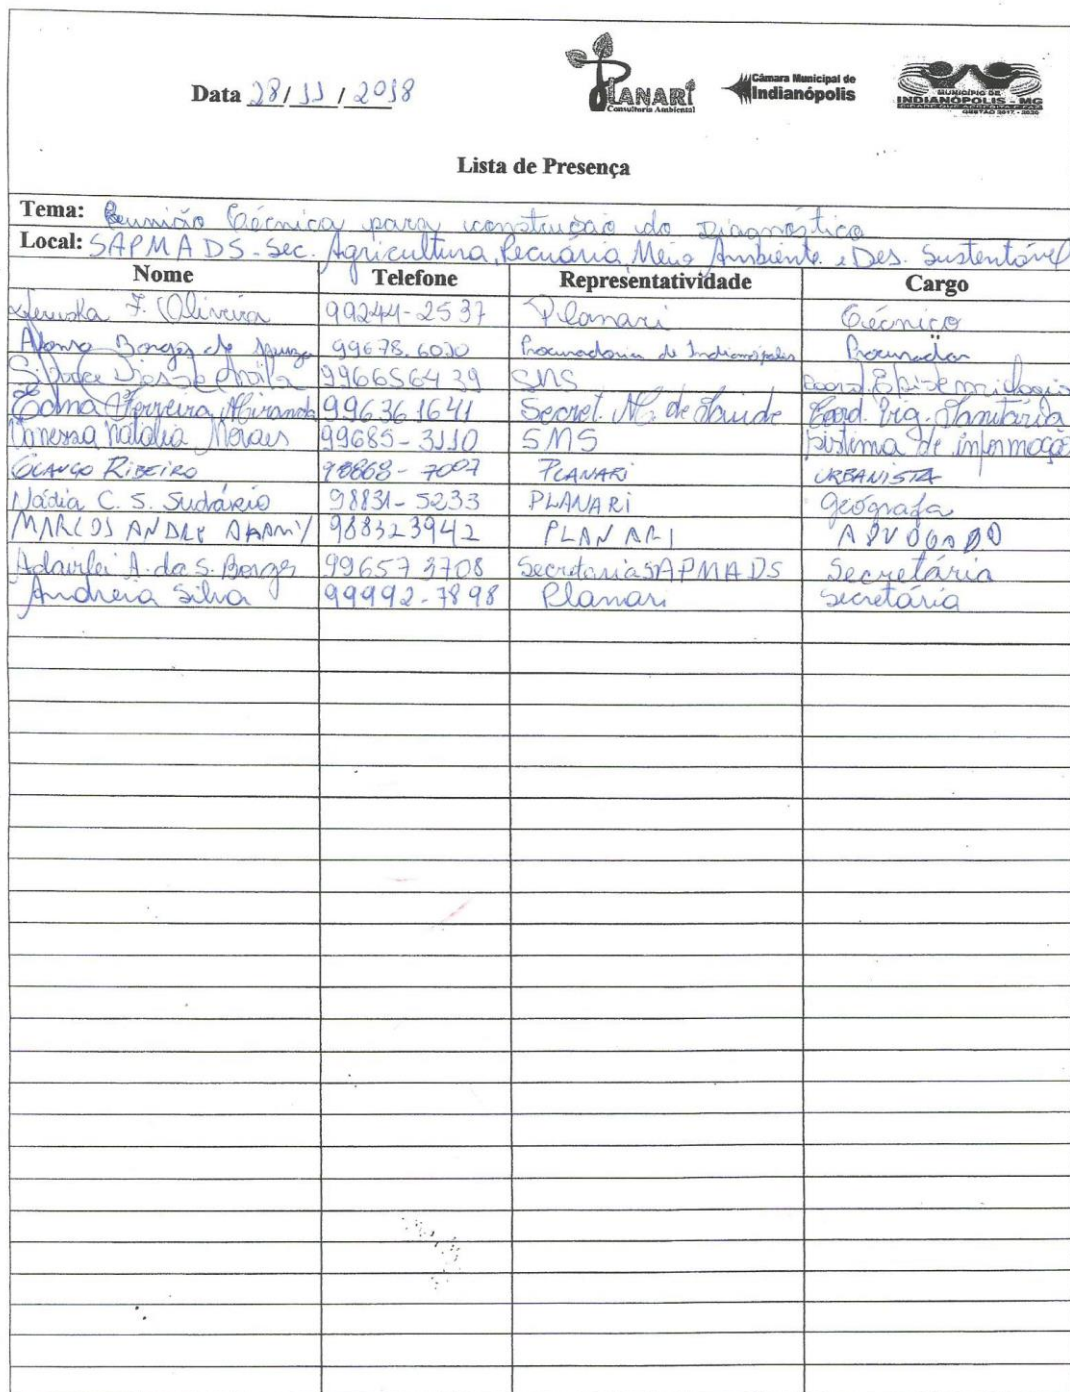 Data 28/11/2018
PLANARI
Consultoria Ambiental
Câmara Municipal de
Indianópolis
MUNICÍPIO DE
INDIANÓPOLIS - MG
GESTÃO 2017 - 2020
Lista de Presença
Tema: Reunião Técnica para construção do Diagnóstico
Local: SAPMADS - Sec. Agricultura, Pecuária, Meio Ambiente e Des. Sustentável
Nome Telefone Representatividade Cargo
F. Oliveira 99244-2537 Planari Técnico
Borges de 99678.6010 Procuradoria de Indianópolis Procurador
996656439 SMS Coord. Epidemiologia
Edma Ferreira Miranda 996361641 Secret. M. de Saúde Coord. Vig. Sanitária
Vanessa Natalia Morais 99685-3110 SMS Sistema de informação
GLAUCO RIBEIRO 98868-7007 PLANARI URBANISTA
Nádia C. S. Sudário 98831-5233 PLANARI Geógrafa
MARCOS ANDRE 988323942 PLANARI ADVOGADO
A. da S. Borges 996573708 Secretaria SAPMADS Secretária
Andreia Silva 99992-7898 Planari Secretária